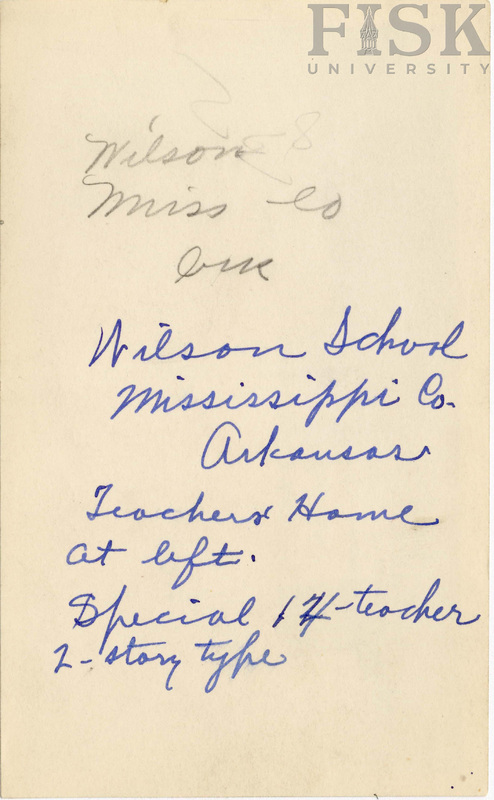 FISK
UNIVERSITY
Wilson
Miss Co
Ark
Wilson School
Mississippi Co.
Arkansas
Teachers Home
at left.
Special -teacher
2-story type